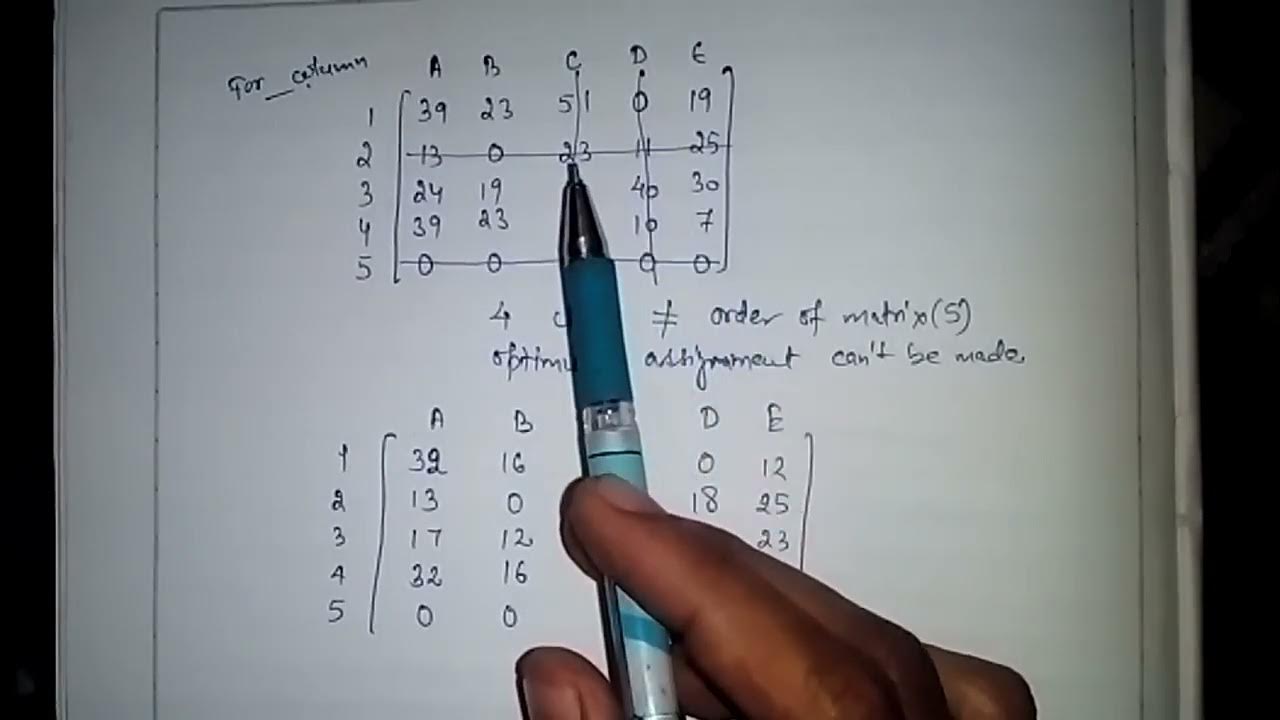 For column
A B C D E
1 39 23 51 0 19
2 13 0 23 11 25
3 24 19 40 30
4 39 23 10 7
5 0 0 0 0
4 ≠ order of matrix(5)
assignment can't be made
A B D E
1 32 16 0 12
2 13 0 18 25
3 17 12 23
4 32 16
5 0 0